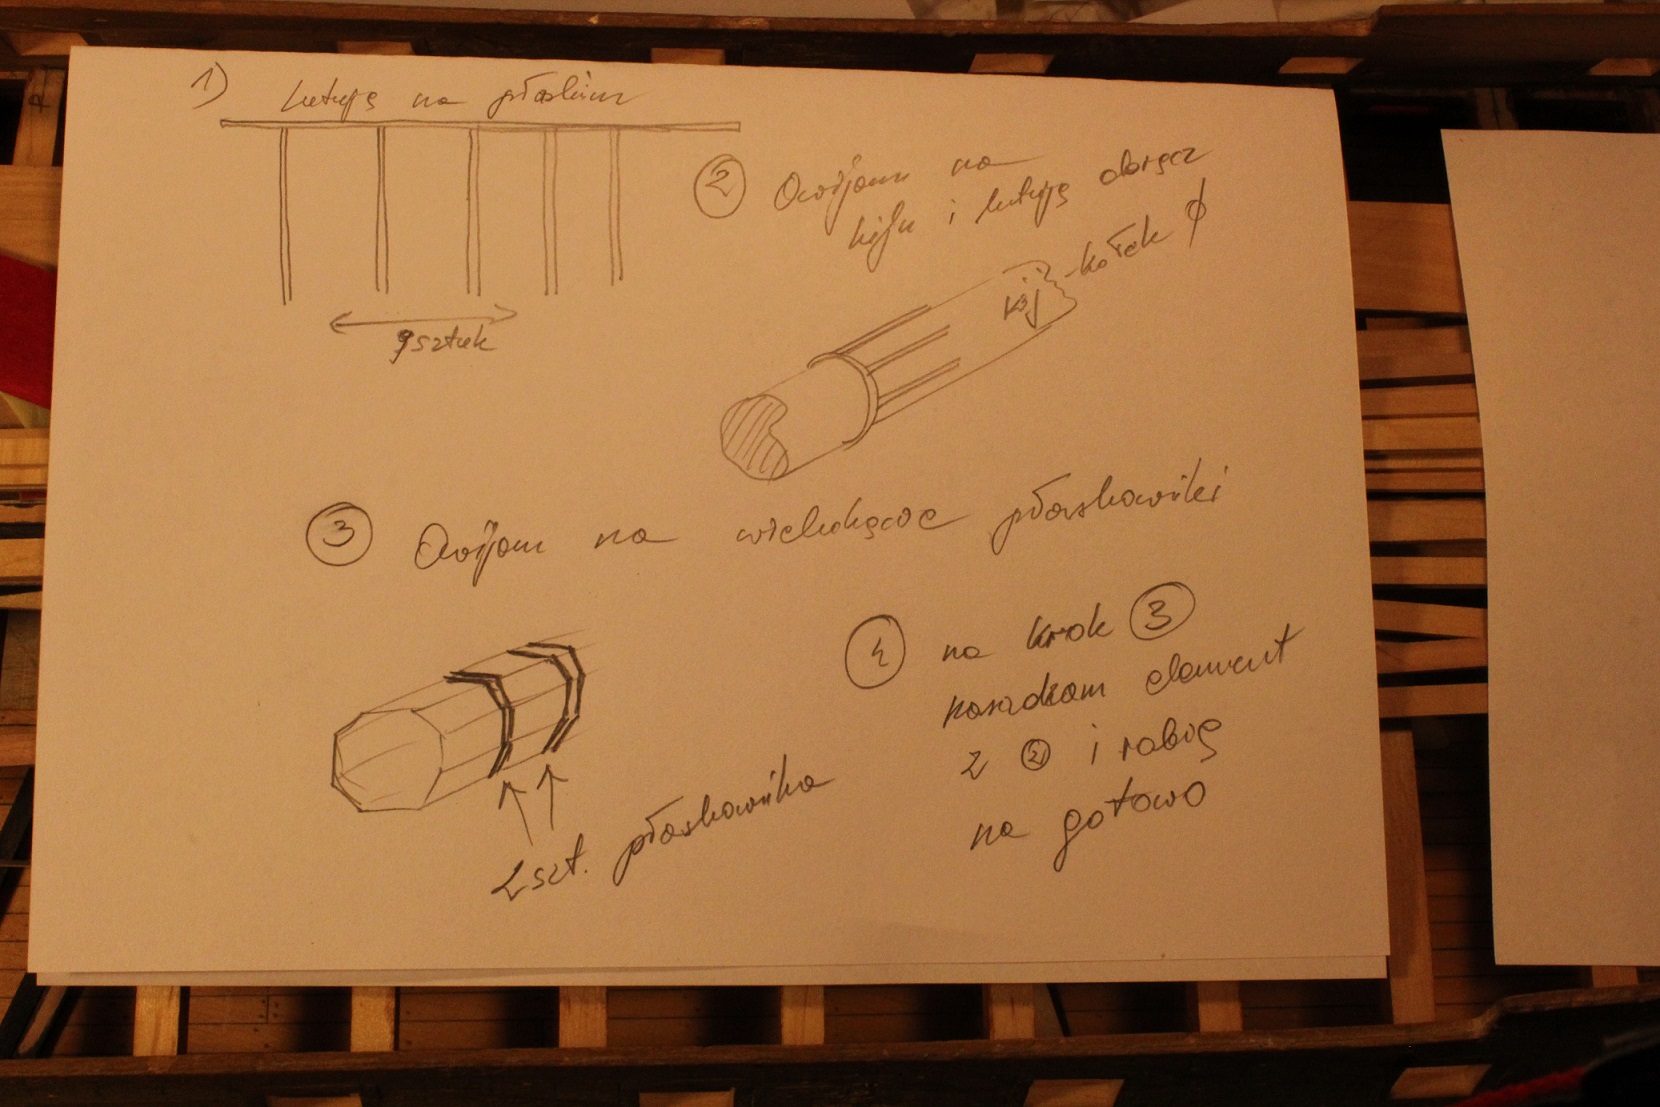 1) Lutuję na płaskim
9 sztuk
② Owijam na
kiju i lutuję obręcz
kij - kołek ϕ
③ Owijam na wielokącie płaskowniki
2 szt. płaskownika
④ na krok ③
nasadzam element
z ② i robię
na gotowo